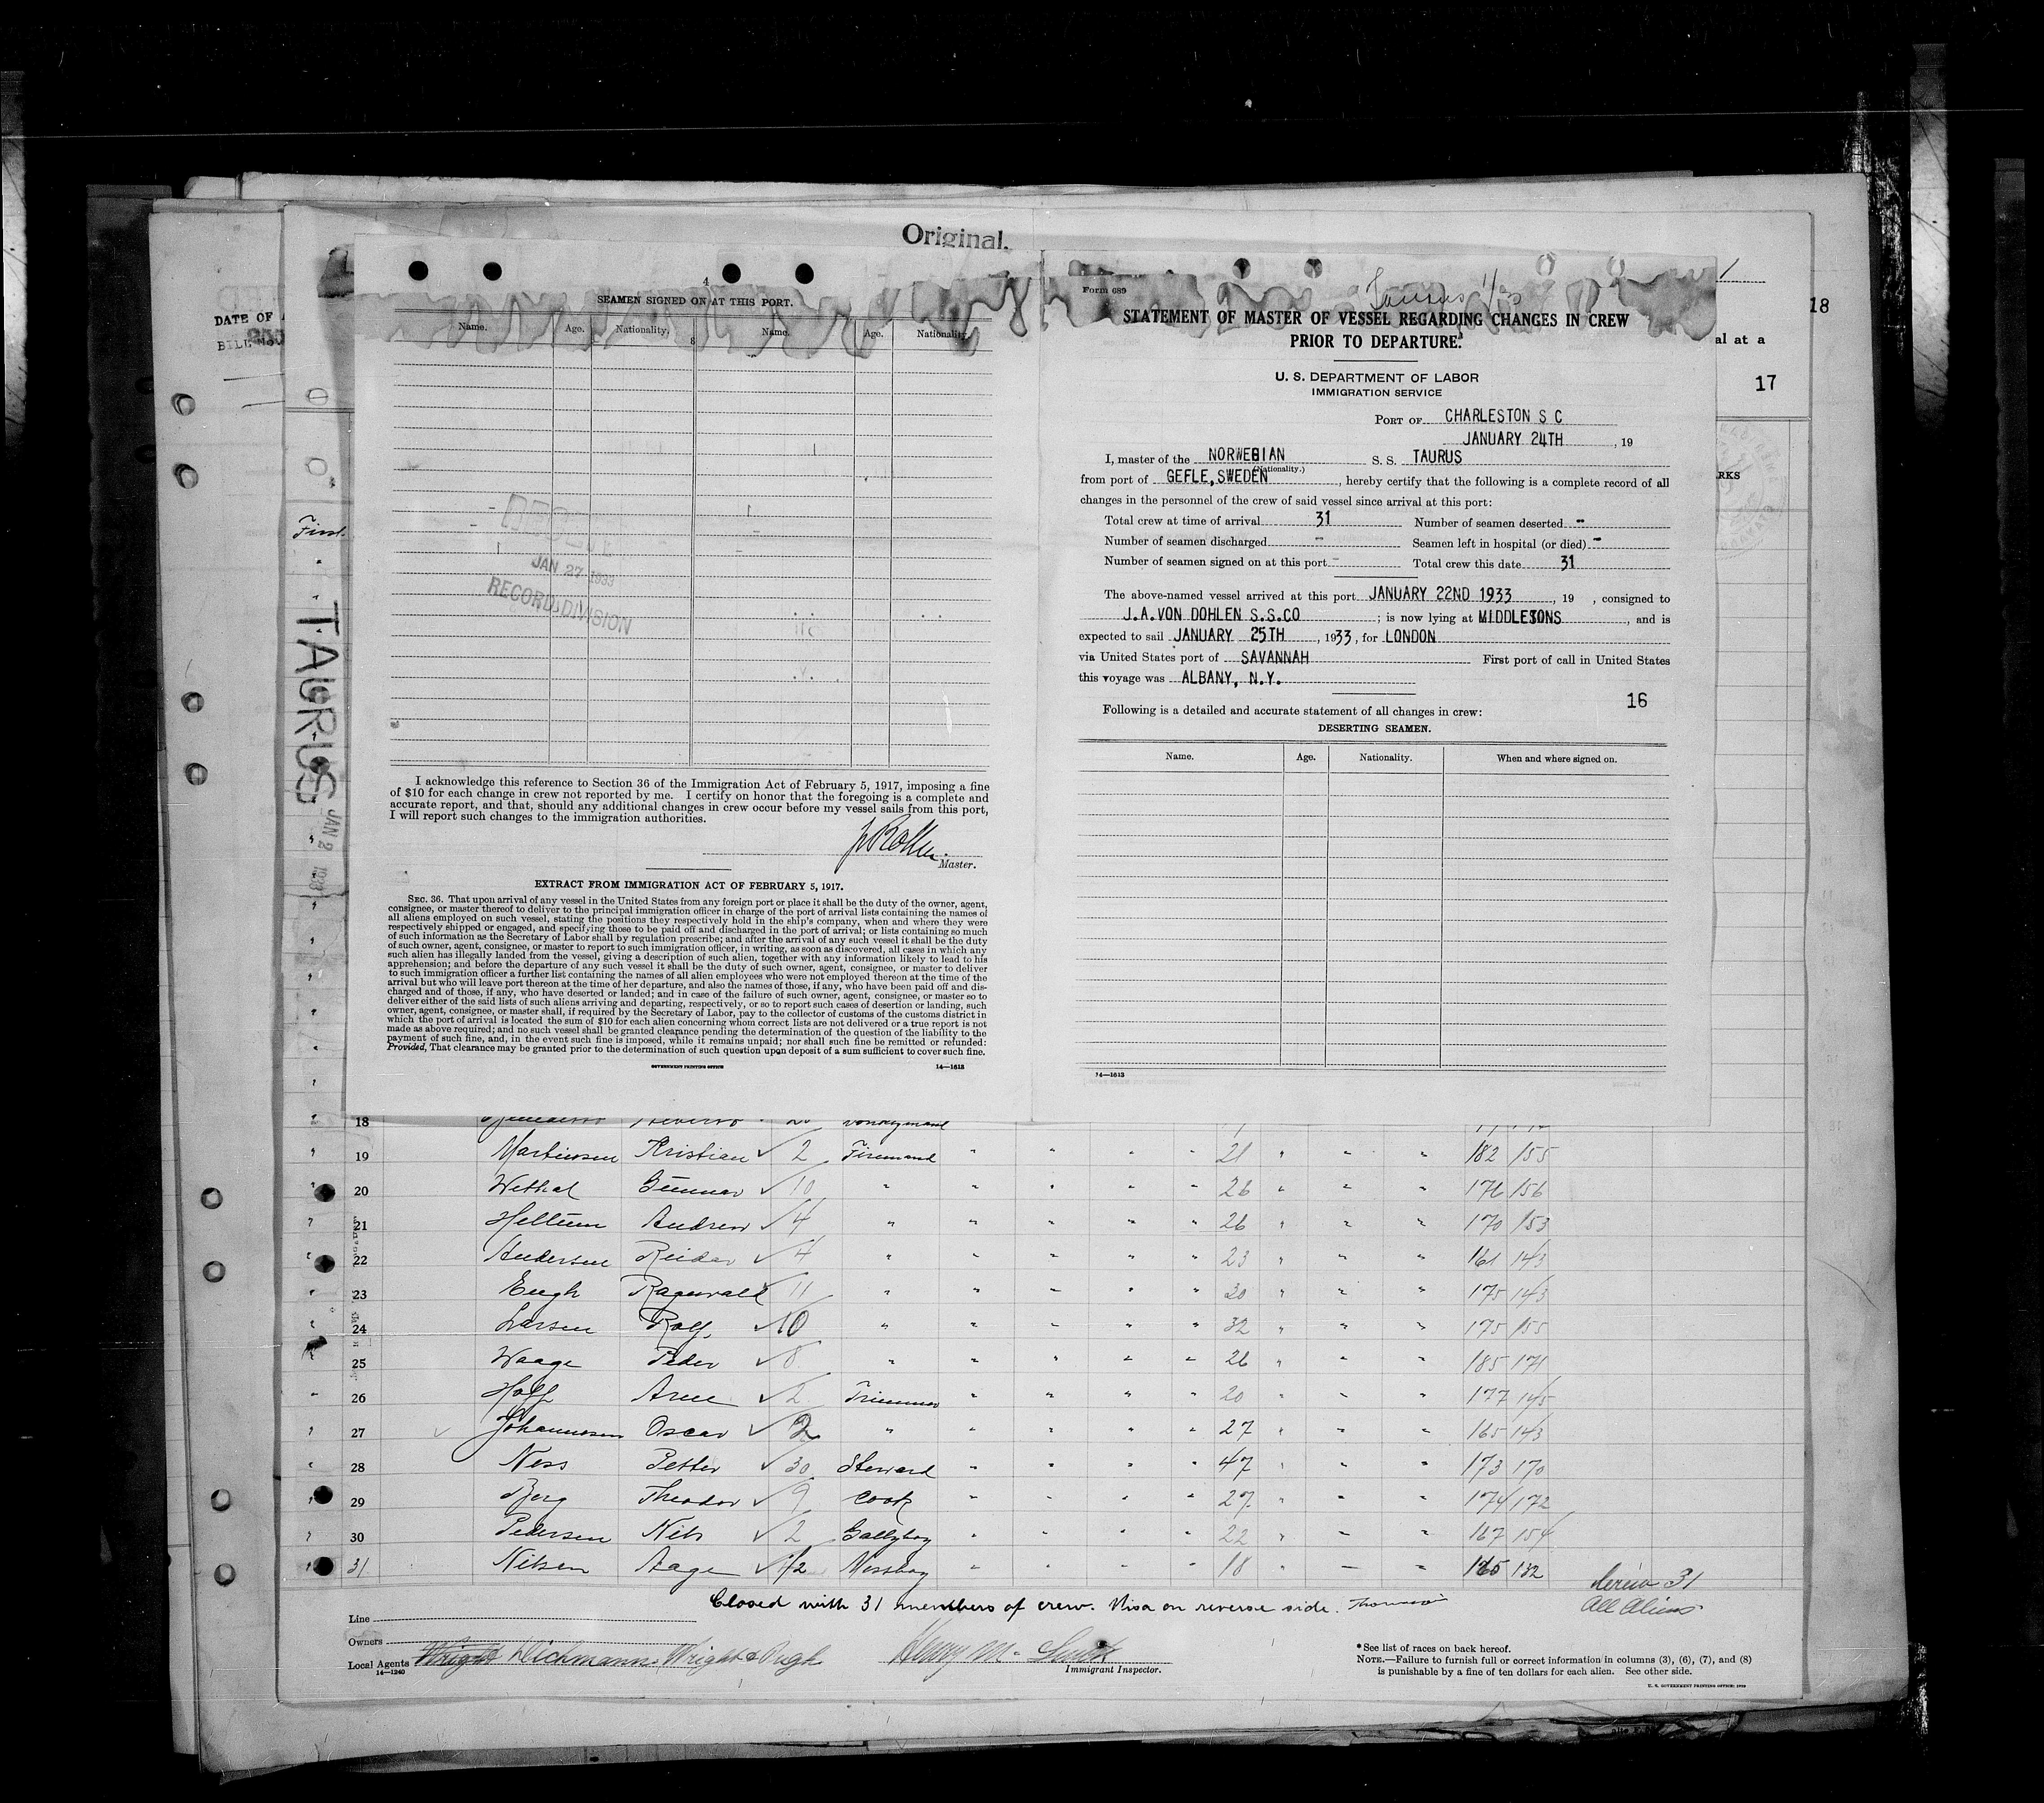 Original.
DATE OF
BILL No.
18
al at a
17
RKS
First
TAURUS
JAN 2 1933
4
SEAMEN SIGNED ON AT THIS PORT.
Name. Age. Nationality. Name. Age. Nationality.
8
JAN 27 1933
RECORD DIVISION
I acknowledge this reference to Section 36 of the Immigration Act of February 5, 1917, imposing a fine
of $10 for each change in crew not reported by me. I certify on honor that the foregoing is a complete and
accurate report, and that, should any additional changes in crew occur before my vessel sails from this port,
I will report such changes to the immigration authorities.
Master.
EXTRACT FROM IMMIGRATION ACT OF FEBRUARY 5, 1917.
SEC. 36. That upon arrival of any vessel in the United States from any foreign port or place it shall be the duty of the owner, agent,
consignee, or master thereof to deliver to the principal immigration officer in charge of the port of arrival lists containing the names of
all aliens employed on such vessel, stating the positions they respectively hold in the ship's company, when and where they were
respectively shipped or engaged, and specifying those to be paid off and discharged in the port of arrival; or lists containing so much
of such information as the Secretary of Labor shall by regulation prescribe; and after the arrival of any such vessel it shall be the duty
of such owner, agent, consignee, or master to report to such immigration officer, in writing, as soon as discovered, all cases in which any
such alien has illegally landed from the vessel, giving a description of such alien, together with any information likely to lead to his
apprehension; and before the departure of any such vessel it shall be the duty of such owner, agent, consignee, or master to deliver
to such immigration officer a further list containing the names of all alien employees who were not employed thereon at the time of the
arrival but who will leave port thereon at the time of her departure, and also the names of those, if any, who have been paid off and dis-
charged and of those, if any, who have deserted or landed; and in case of the failure of such owner, agent, consignee, or master so to
deliver either of the said lists of such aliens arriving and departing, respectively, or so to report such cases of desertion or landing, such
owner, agent, consignee, or master shall, if required by the Secretary of Labor, pay to the collector of customs of the customs district in
which the port of arrival is located the sum of $10 for each alien concerning whom correct lists are not delivered or a true report is not
made as above required; and no such vessel shall be granted clearance pending the determination of the question of the liability to the
payment of such fine, and, in the event such fine is imposed, while it remains unpaid; nor shall such fine be remitted or refunded:
Provided, That clearance may be granted prior to the determination of such question upon deposit of a sum sufficient to cover such fine.
GOVERNMENT PRINTING OFFICE 14—1613
Form 689
Taurus
STATEMENT OF MASTER OF VESSEL REGARDING CHANGES IN CREW
PRIOR TO DEPARTURE.
U. S. DEPARTMENT OF LABOR
IMMIGRATION SERVICE
PORT OF CHARLESTON S C
JANUARY 24TH , 19
I, master of the NORWEGIAN S. S. TAURUS
(Nationality.)
from port of GEFLE, SWEDEN , hereby certify that the following is a complete record of all
changes in the personnel of the crew of said vessel since arrival at this port:
Total crew at time of arrival 31 Number of seamen deserted -
Number of seamen discharged - Seamen left in hospital (or died) -
Number of seamen signed on at this port - Total crew this date 31
The above-named vessel arrived at this port JANUARY 22ND 1933 , 19 , consigned to
J.A.VON DOHLEN S.S.CO ; is now lying at MIDDLETONS , and is
expected to sail JANUARY 25TH , 1933, for LONDON
via United States port of SAVANNAH First port of call in United States
this voyage was ALBANY, N.Y.
16
Following is a detailed and accurate statement of all changes in crew:
DESERTING SEAMEN.
Name. Age. Nationality. When and where signed on.
14—1613
18
19 Martinsen Kristian 2 Firemand " " " " 21 " " " 182 155
20 Wethal Gunnar 10 " " " " " 26 " " " 176 156
21 Hellum Andrew 4 " " " " " 26 " " " 170 153
22 Andersen Reidar 4 " " " " " 23 " " " 161 143
23 Engh Ragnvald 11 " " " " " 30 " " " 175 143
24 Larsen Rolf 10 " " " " " 32 " " " 175 155
25 Waage Peder 8 " " " " " 26 " " " 185 171
26 Hoff Arne 2 Trimmer " " " " 20 " " " 177 145
27 Johannesen Oscar 2 " " " " " 27 " " " 165 143
28 Ness Petter 30 Steward " " " " 47 " " " 173 170
29 Berg Theodor 9 Cook " " " " 27 " " " 174 172
30 Pedersen Nils 2 Gallyboy " " " " 22 " " " 167 154
31 Nilsen Aage 1/2 Messboy " " " " 18 " " " 165 132
Closed with 31 members of crew. Visa on reverse side.
Crew 31
All Aliens
Line
Owners
Local Agents Wright Dichmann, Wright & Pugh Henry M. Smith
14—1240 Immigrant Inspector.
*See list of races on back hereof.
NOTE.—Failure to furnish full or correct information in columns (3), (6), (7), and (8)
is punishable by a fine of ten dollars for each alien. See other side.
U. S. GOVERNMENT PRINTING OFFICE: 1929